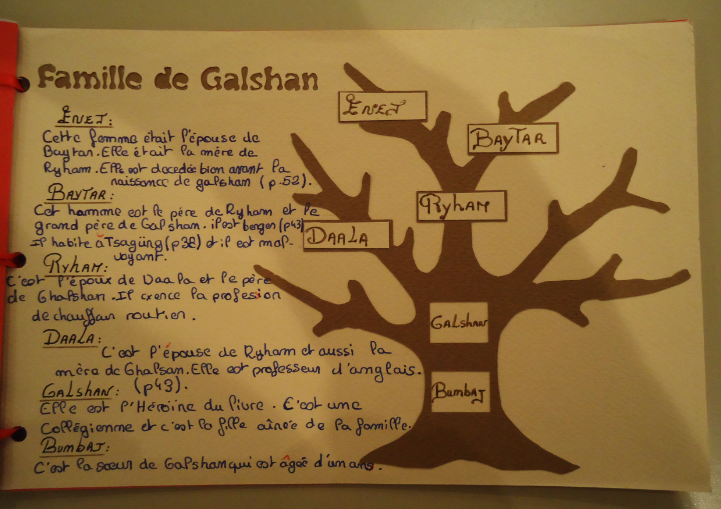 Famille de Galshan
ENEJ:
Cette femme était l'épouse de
Baytar. Elle était la mère de
Ryham. Elle est décedée bien avant la
naissance de galshan (p 52).
BAYTAR:
Cet homme est le père de Ryham et le
grand père de Galshan. il est berger (p43)
Il habite à Tsagüng (p38) et il est mal-
voyant.
RYHAM:
C'est l'époux de Daala et le père
de Ghalshan. Il exerce la profession
de chauffeur routier.
DAALA:
C'est l'épouse de Ryham et aussi la
mère de Ghalsan. Elle est professeur d'anglais.
(p43).
GALSHAN:
Elle est l'Héroïne du livre. C'est une
Collégienne et c'est la fille aînée de la famille.
BUMBAJ:
C'est la sœur de Galshan qui est âgée d'un ans.
ENEJ
BAYTAR
RYHAM
DAALA
GALSHAN
BUMBAJ